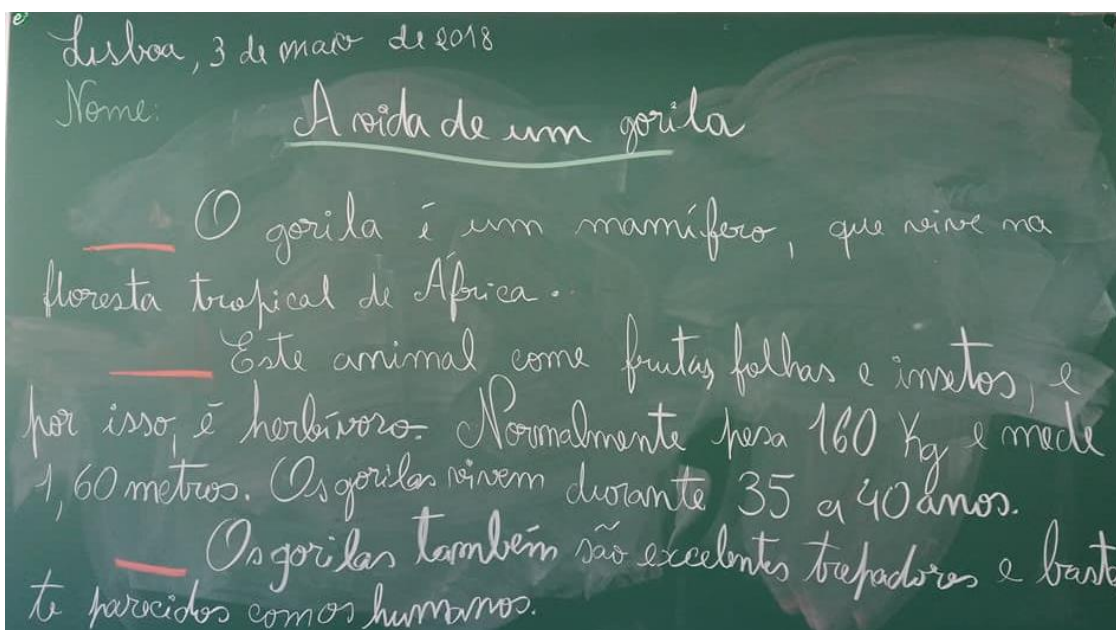 Lisboa, 3 de maio de 2018
Nome:
A vida de um gorila
O gorila é um mamífero, que vive na
floresta tropical de África.
Este animal come frutas, folhas e insetos, e
por isso, é herbívoro. Normalmente pesa 160 Kg e mede
1,60 metros. Os gorilas vivem durante 35 a 40 anos.
Os gorilas também são excelentes trepadores e basta
te parecidos com os humanos.